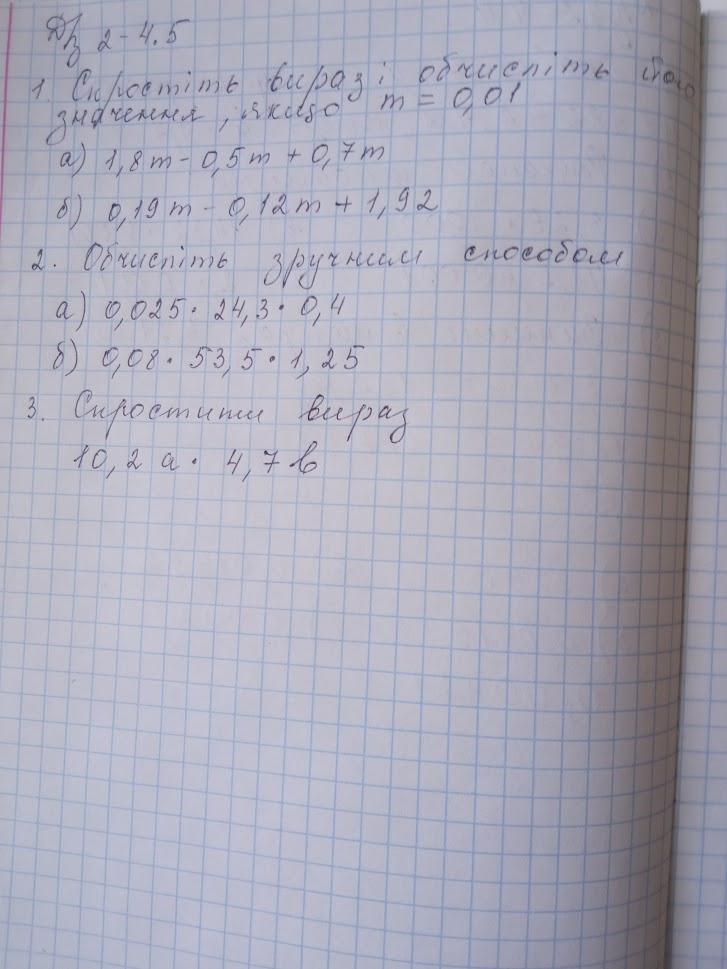 Дз 2-4.5
1. Спростіть вираз і обчисліть його
значення, якщо m = 0,01
а) 1,8m - 0,5m + 0,7m
б) 0,19m - 0,12m + 1,92
2. Обчисліть зручним способом
а) 0,025 · 24,3 · 0,4
б) 0,08 · 53,5 · 1,25
3. Спростити вираз
10,2 а · 4,7 в